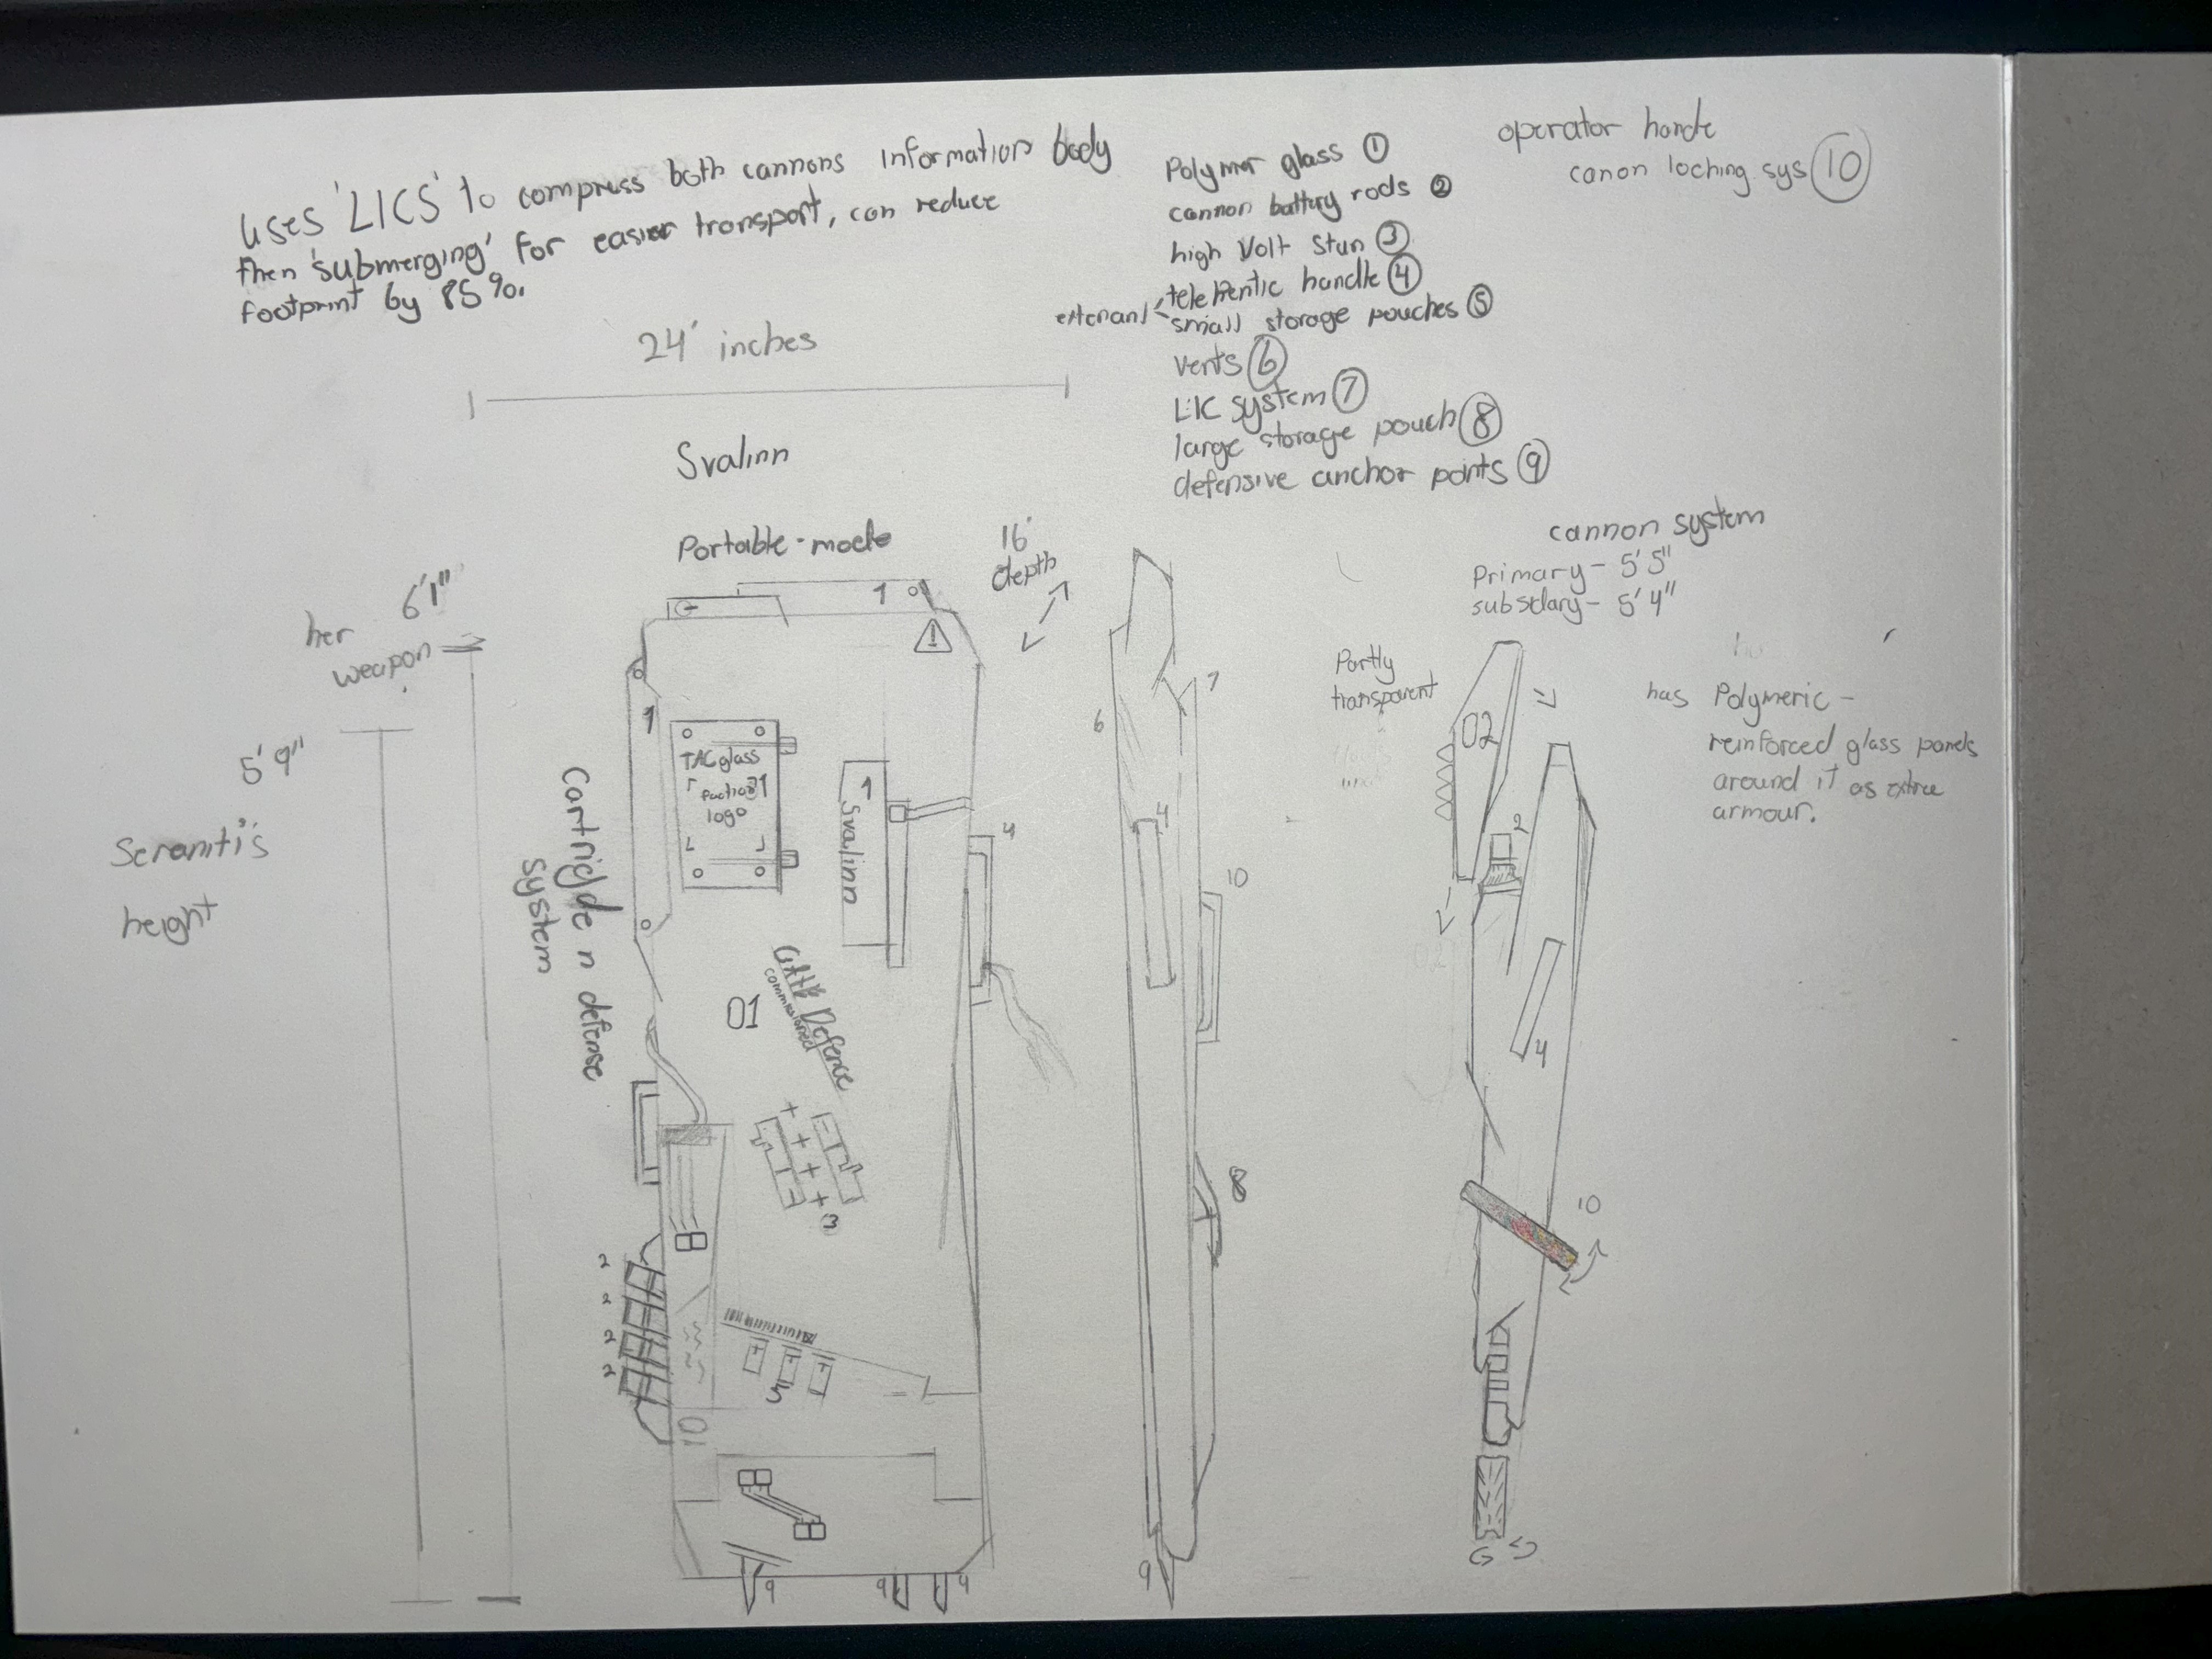 uses 'LICS' to compress both cannons information body
then 'submerging' for easier transport, can reduce
footprint by 85%.
24' inches
Svalinn
Portable-mode
16'
depth
Polymer glass ①
cannon battery rods ②
high Volt stun ③
handle ④
small storage pouches ⑤
vents ⑥
LIC system ⑦
large storage pouch ⑧
defensive anchor points ⑨
operator
canon locking sys ⑩
cannon system
Primary - 5'5"
5'4"
her 6'1"
weapon
5'9"
height
Cartrigde n defense
system
1
1
TAC glass
logo
1
Svalinn
4
01
Defence
commissioned
3
2
2
2
2
5
01
9
9
9
7
6
4
10
8
9
Partly
transparent
02
2
4
10
has Polymeric-
reinforced glass panels
around it as extra
armour.